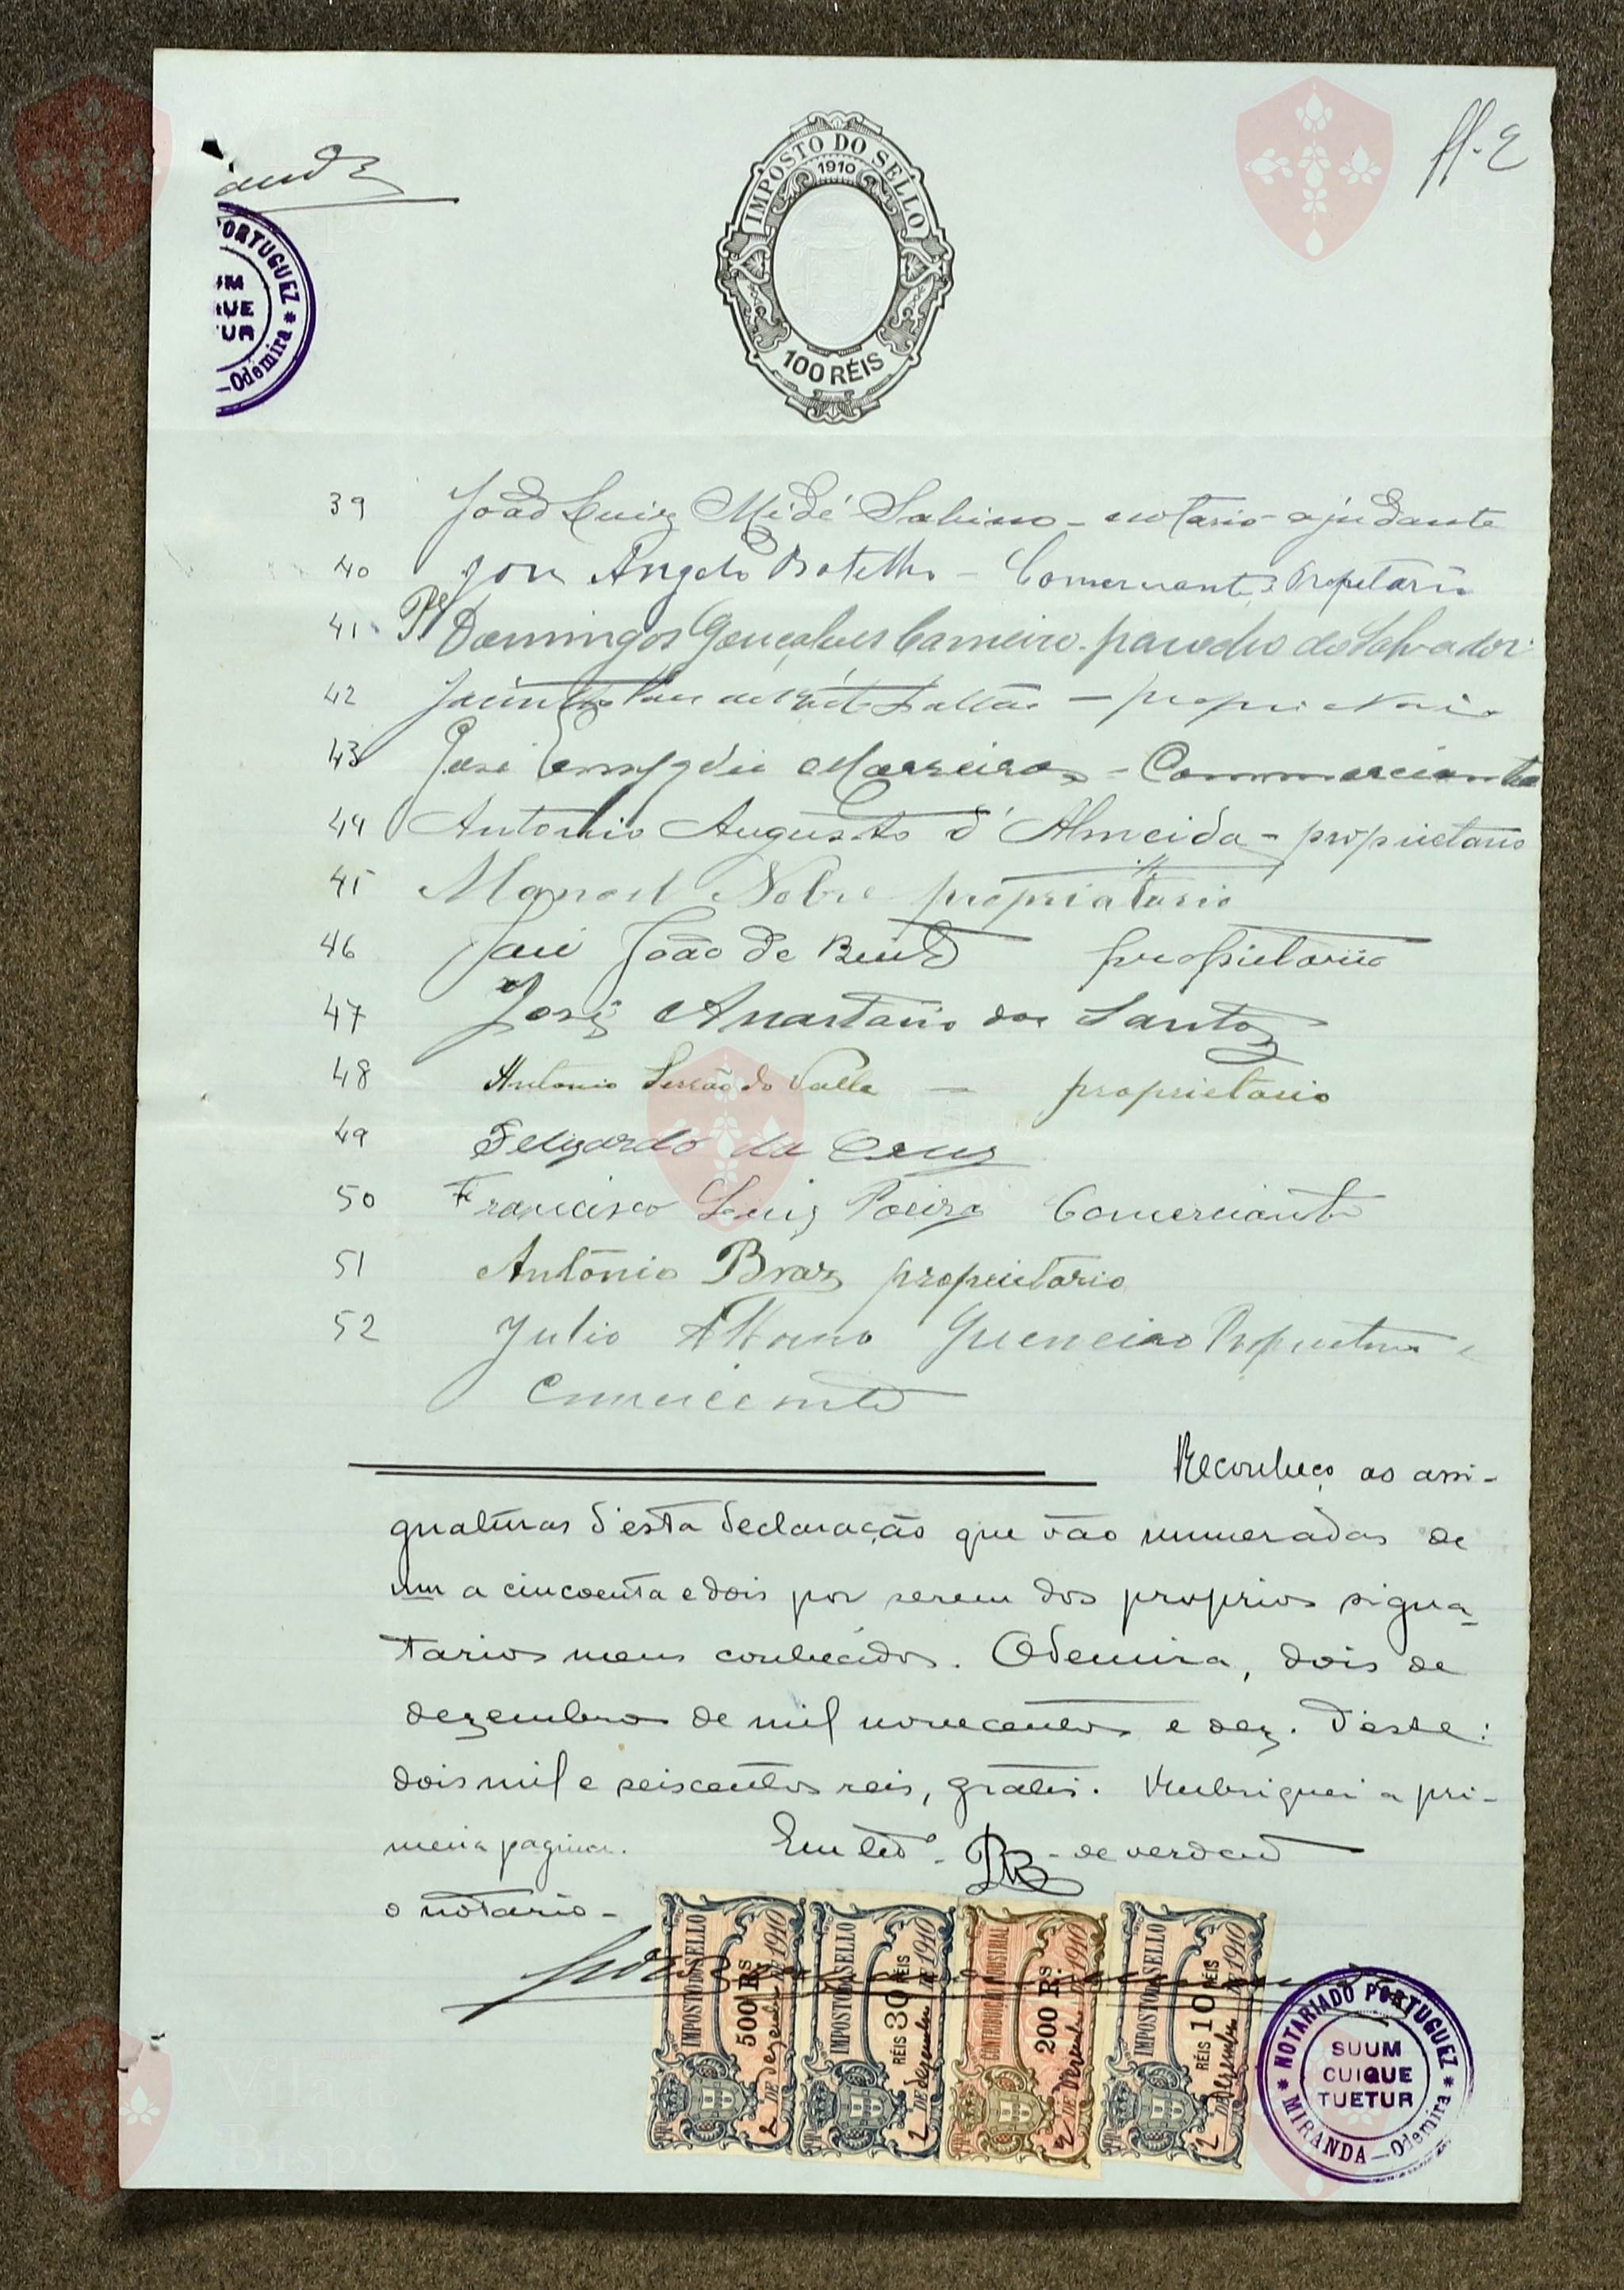 ff. 2
IMPOSTO DO SELLO
1910
100 RÉIS
ORTUGUEZ
UM
QUE
TUR
Odemira
39 João Luiz Sabino - notario ajudante
40 José Angelo Botelho - Comerciante e Propetario
41 Pe Domingos Gonçalves Carneiro. parocho do Salvador
42 Jacintho - proprietario
43 José Emygdio Marreiros - Commerciante
44 Antonio Augusto d'Almeida - proprietario
45 Manoel Nobre propriatario
46 José João de Brito proprietario
47 José Anastacio dos Santos
48 Antonio Serrão do Valle - proprietario
49 Felizardo da Cruz
50 Francisco Luiz Poeira Comerciante
51 António Braz proprietario
52 Julio Guerreiro Proprietario e
Comerciante
Reconheço as assi-
gnaturas d'esta declaração que vão numeradas de
um a cincoenta e dois por serem dos proprios signa-
tarios meus conhecidos. Odemira, dois de
dezembro de mil novecentos e dez. D'este:
dois mil e seiscentos reis, gratis. Rubriquei a pri-
meira pagina. Em testº de verdade
o notario -
IMPOSTO DO SELLO 500 Rs 2 DE Dezembro DE 1910
IMPOSTO DO SELLO RÉIS 30 RÉIS 2 DE Dezembro DE 1910
CONTRIBUIÇÃO INDUSTRIAL 200 Rs 2 DE Dezembro DE 1910
IMPOSTO DO SELLO RÉIS 10 RÉIS 2 DE Dezembro DE 1910
NOTARIADO PORTUGUEZ
SUUM
CUIQUE
TUETUR
MIRANDA - Odemira